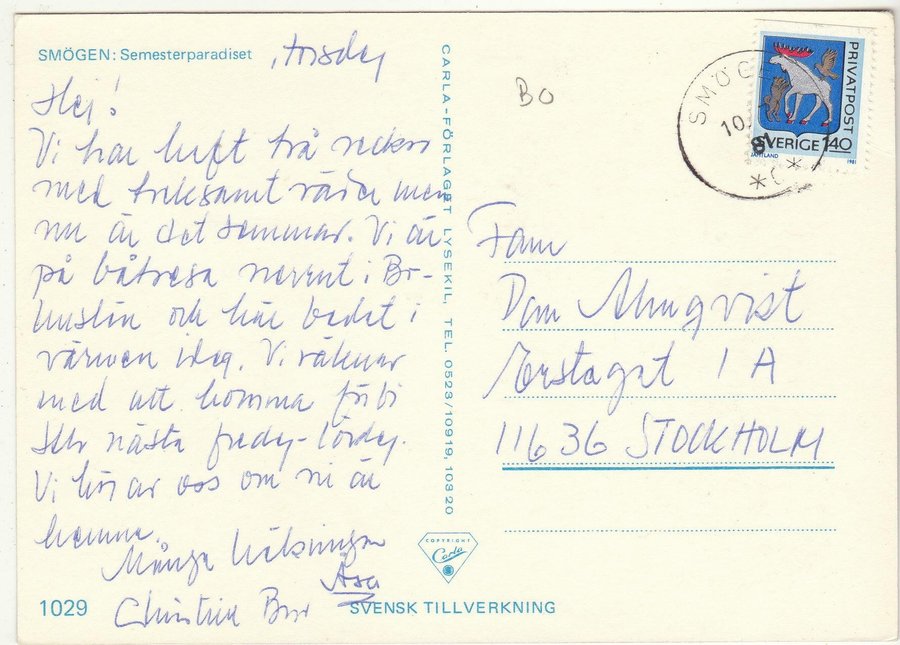 SMÖGEN: Semesterparadiset
torsdag
Hej!
Vi har haft två veckor
med tveksamt väder men
nu är det sommar. Vi är
på båtresa norrut i Bo-
huslän och har badat i
värmen idag. Vi räknar
med att komma förbi
Sthlm nästa fredag-lördag.
Vi hör av oss om ni är
hemma.
Många hälsningar
Åsa
Christina Bror
1029
CARLA-FÖRLAGET LYSEKIL, TEL. 0523/10919, 103 20
COPYRIGHT
Carla
SVENSK TILLVERKNING
BO
SMÖGEN
10
81
PRIVATPOST
SVERIGE 1.40
JÄMTLAND
1981
Fam
Dan Almqvist
Torstagat 1 A
116 36 STOCKHOLM